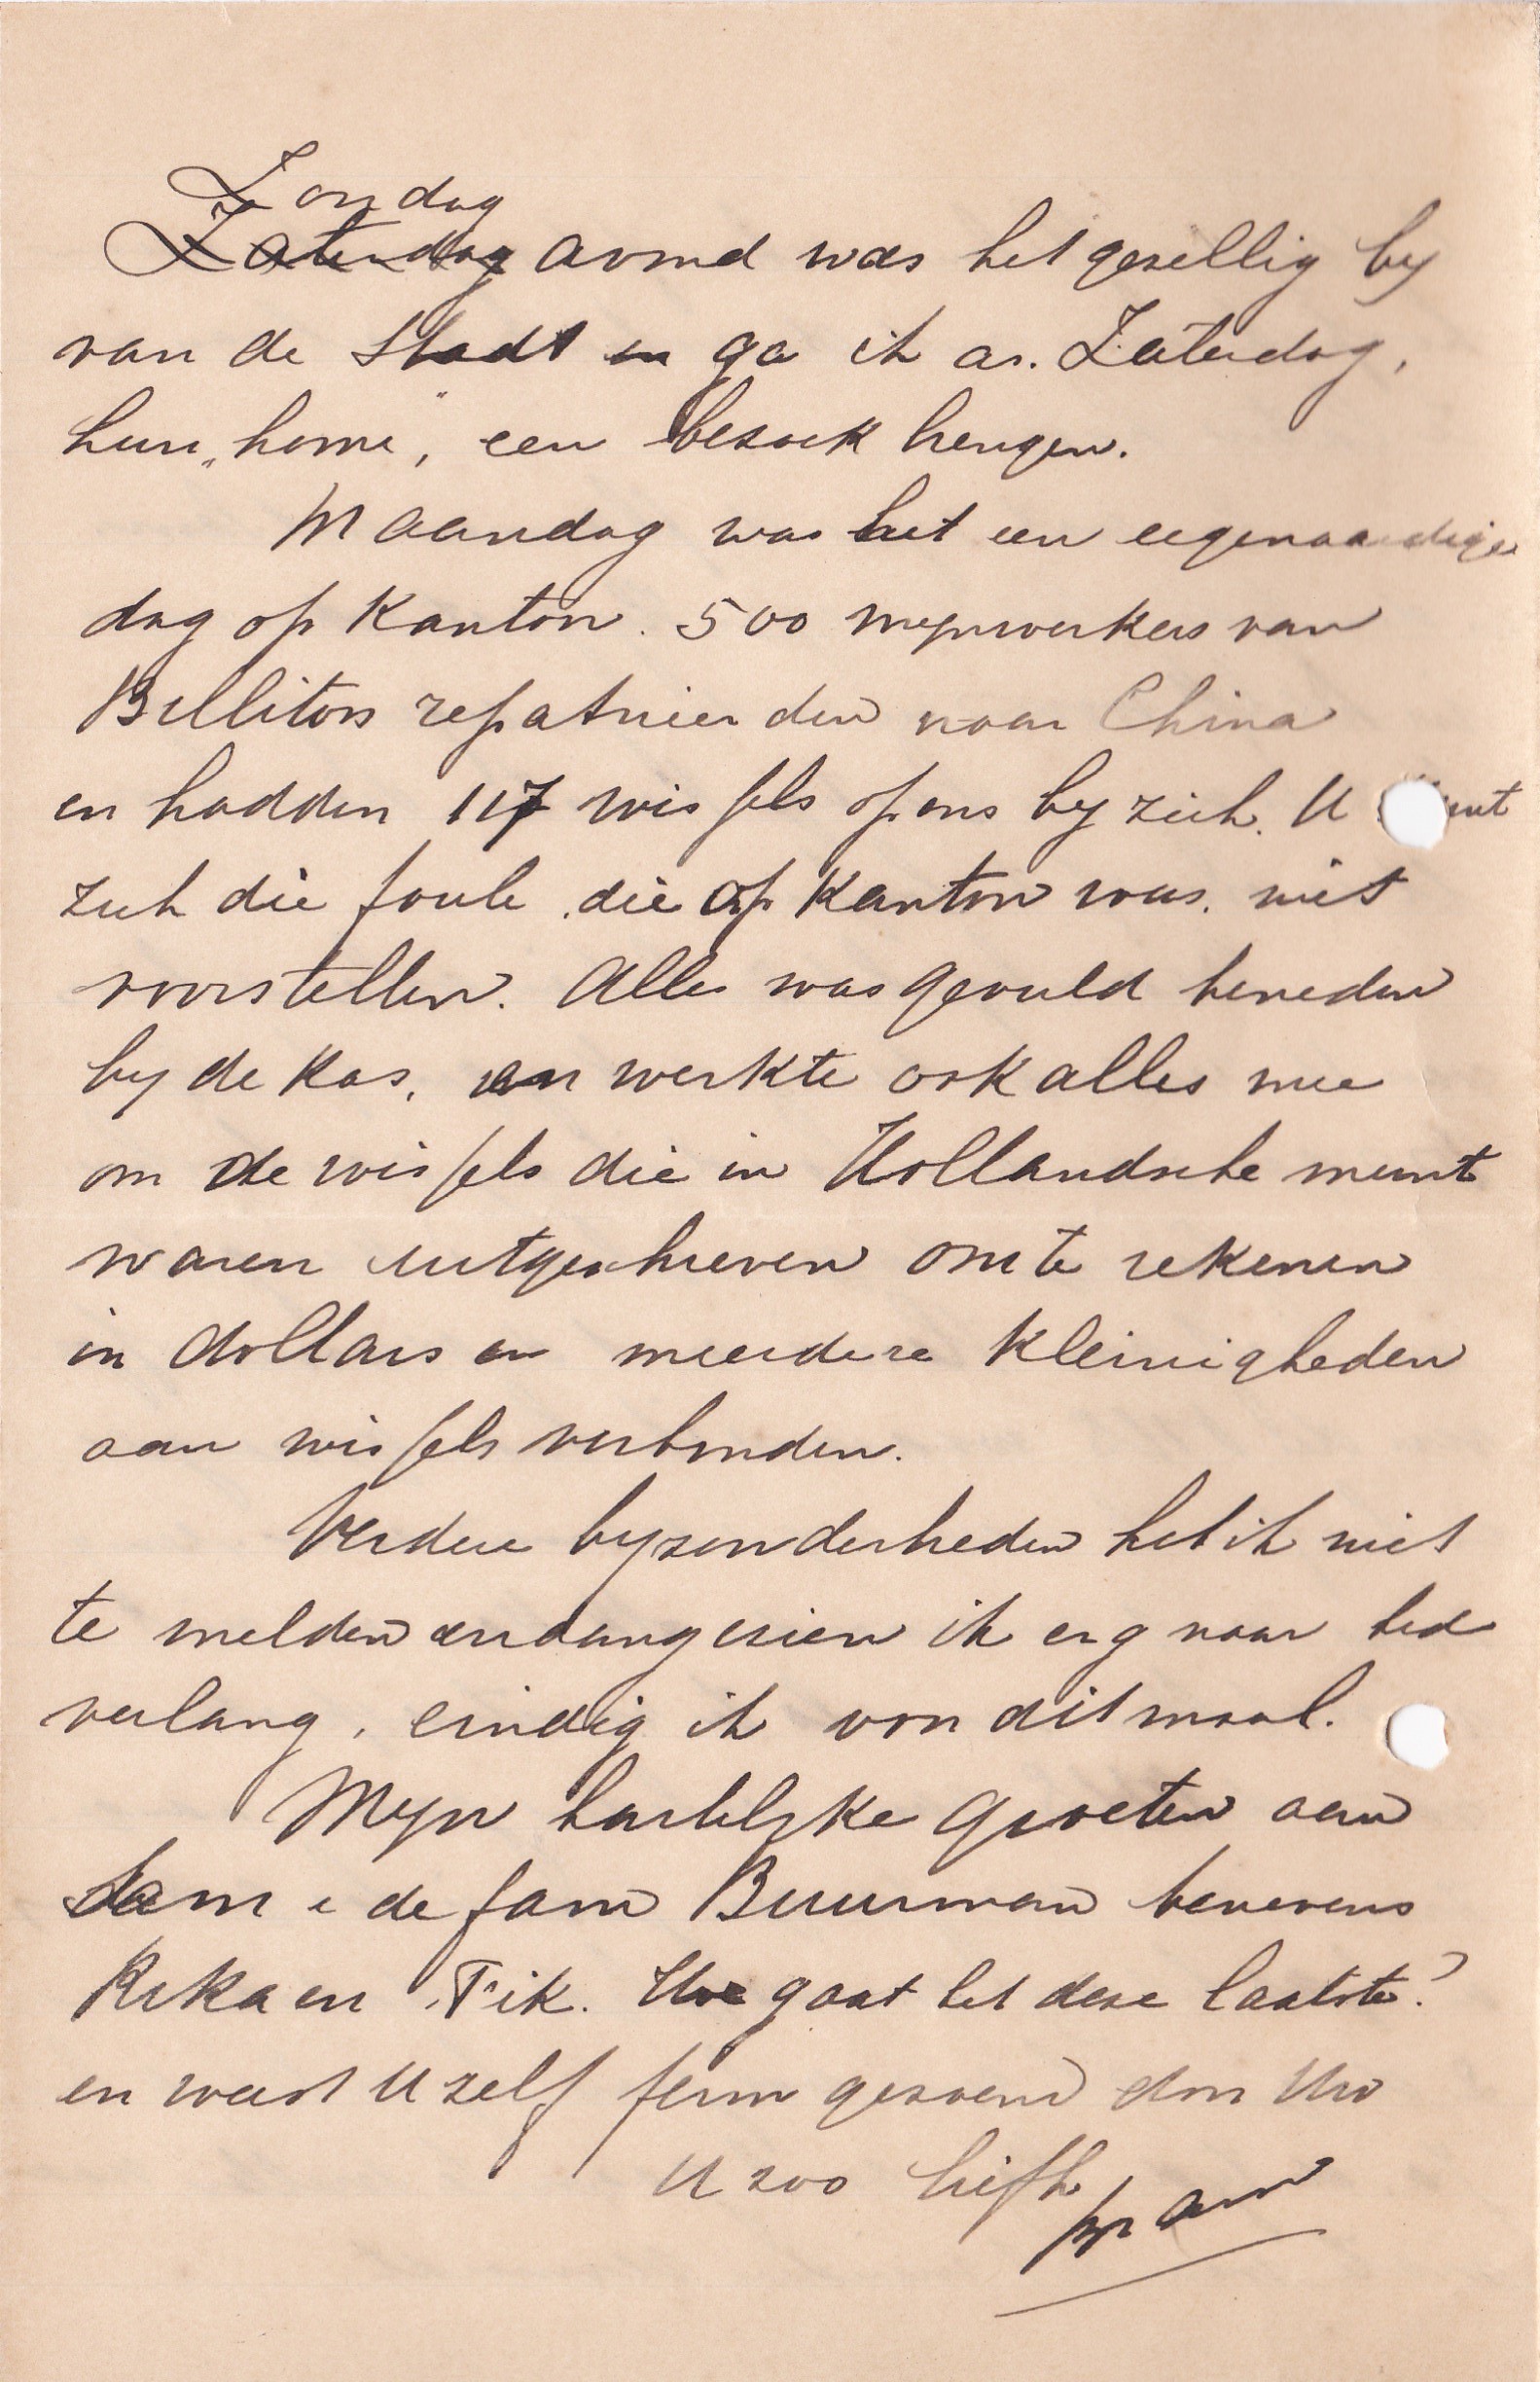 Zondag
Zaterdag avond was het gezellig by
van de Stadt en ga ik as. Zaterdag,
hun "home", een bezoek brengen.
Maandag was het een eigenaardige
dag op Kantoor. 500 mynwerkers van
Billiton repatrieerden naar China
en hadden 117 wissels op ons by zich. U kunt
zich die foule, die op Kantoor was, niet
voorstellen. Alles was gevuld beneden
by de Kas, en werkte ook alles mee
om de wissels die in Hollandsche munt
waren uitgeschreven om te rekenen
in dollars en meerdere kleinigheden
aan wissels verbonden.
Verdere byzonderheden heb ik niet
te melden en aangezien ik erg naar bed
verlang, eindig ik voor ditmaal.
Myn hartelyke groeten aan
Sam & de fam Buurman benevens
Rika en Fik. Hoe gaat het deze laatste?
en weest U zelf ferm gezoend door Uw
U zoo liefh.